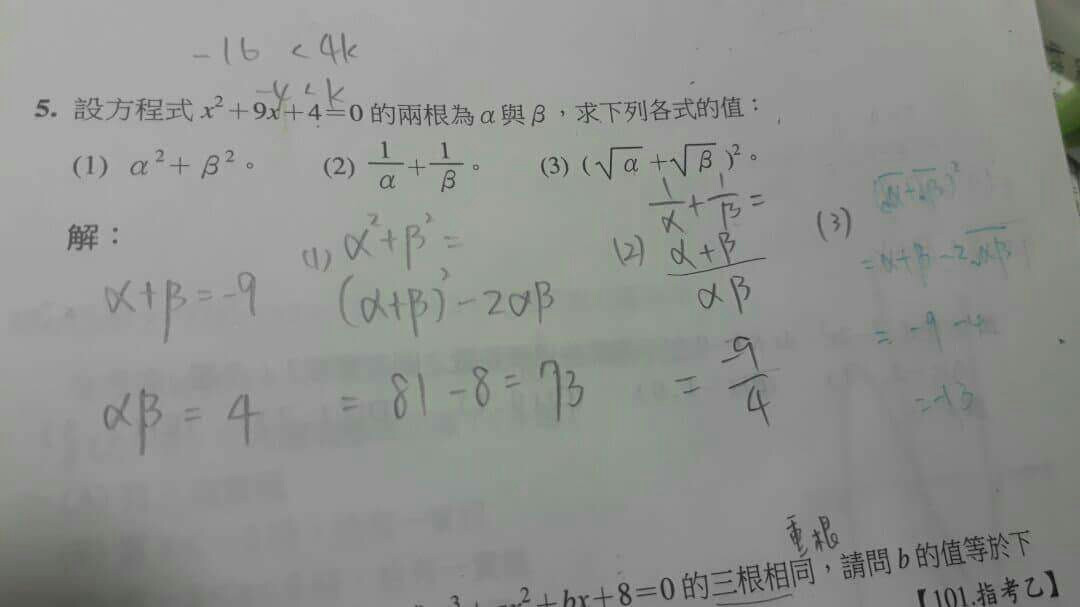 -16 < 4k
-4 < k
5. 設方程式 x²+9x+4=0 的兩根為 α 與 β，求下列各式的值：
(1) α²+β²。 (2) 1/α+1/β。 (3) (√α+√β)²。
解：
α+β=-9
αβ=4
(1) α²+β²=
(α+β)²-2αβ
=81-8=73
(2) 1/α+1/β=
(α+β)/(αβ)
=-9/4
(3) (√α+√β)²
=α+β-2√αβ
=-9-4
=-13
重根
+bx+8=0 的三根相同，請問 b 的值等於下
【101.指考乙】